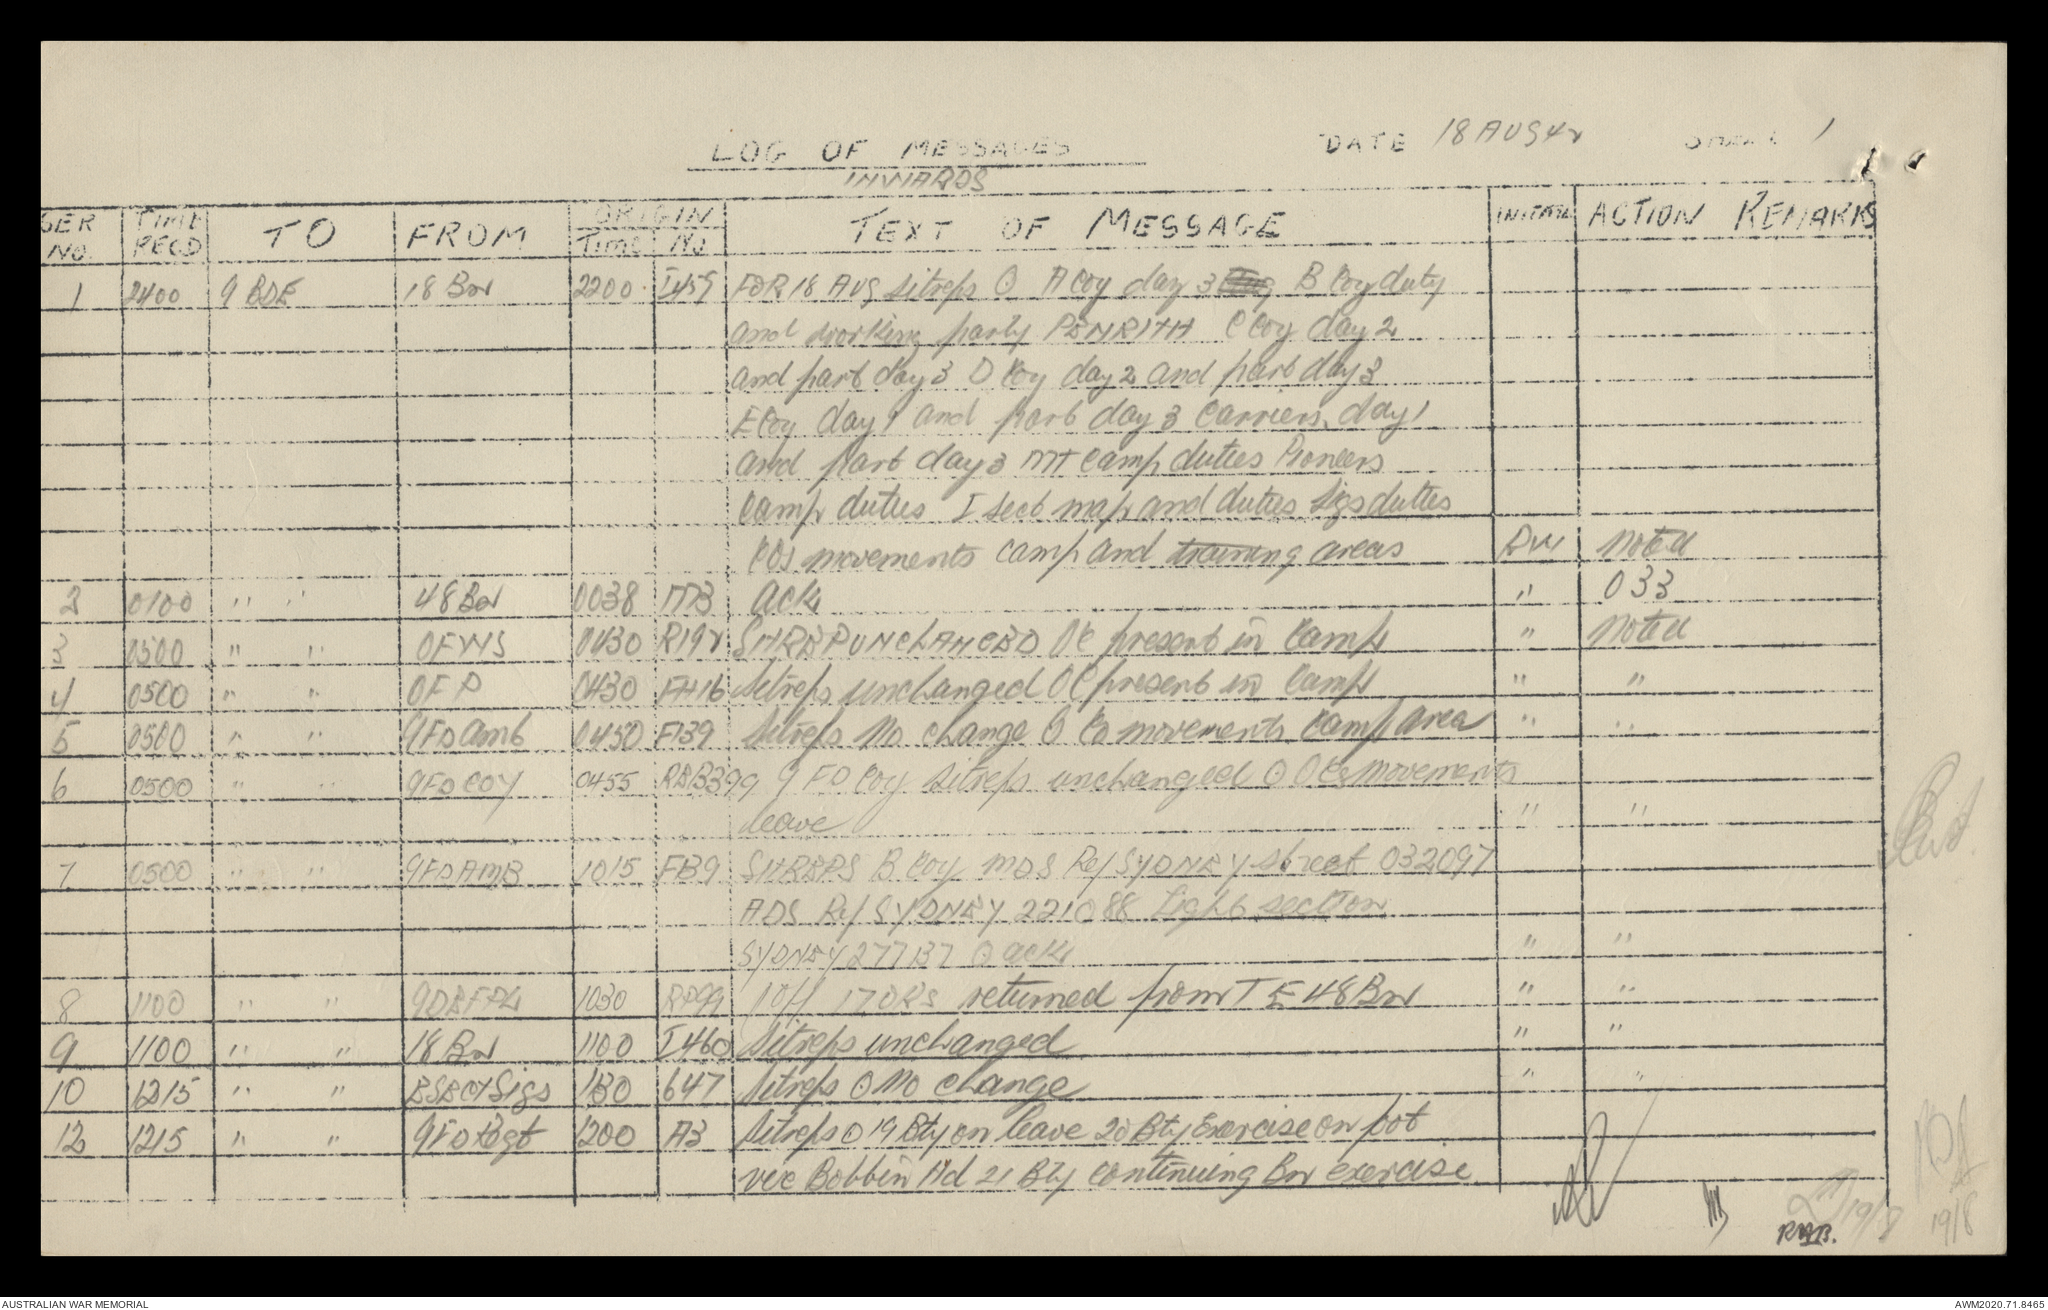 LOG OF MESSAGES DATE 18 AUG 42 SHEET 1
INWARDS
SER NO. TIME RECD TO FROM ORIGIN TIME NO TEXT OF MESSAGE INITIAL ACTION REMARKS
1 2400 9 BDE 18 Bn 2200 I459 FOR 18 AUG sitreps O A Coy day 3 B Coy duty
and working party PENRITH C Coy day 2
and part day 3 D Coy day 2 and part day 3
E Coy day 1 and part day 3 Carriers day 1
and part day 3 MT camp duties Pioneers
camp duties I sect map and duties Sigs duties
COs movements camp and training areas noted
2 0100 " " 48 Bn 0038 M3 ack " 033
3 0500 " " OFWS 0430 R192 SITREP UNCHANGED OC present in camp " noted
4 0500 " " OFP 0430 FH16 Sitreps unchanged OC present in camp " "
5 0500 " " 9 FD Amb 0450 F139 Sitreps No change O Co movements camp area " "
6 0500 " " 9 FD COY 0455 RBB399 9 FD Coy Sitreps unchanged O OCs movements
leave " "
7 0500 " " 9 FD AMB 1015 FB9 SITREPS B Coy MDS Ref SYDNEY street 032097
ADS Ref SYDNEY 221088 Light section
SYDNEY 277137 O ack " "
8 1100 " " 1030 RP99 1 Off 17 ORS returned from T E 48 Bn " "
9 1100 " " 18 Bn 1100 I460 Sitreps unchanged " "
10 1215 " " Sigs 1130 647 Sitreps O No change " "
12 1215 " " 9 FD Regt 1200 A3 Sitreps O 19 Bty on leave 20 Bty Exercise on foot
vic Bobbin Hd 21 Bty continuing Bn exercise
19/8
19/8
AUSTRALIAN WAR MEMORIAL AWM2020.71.8465